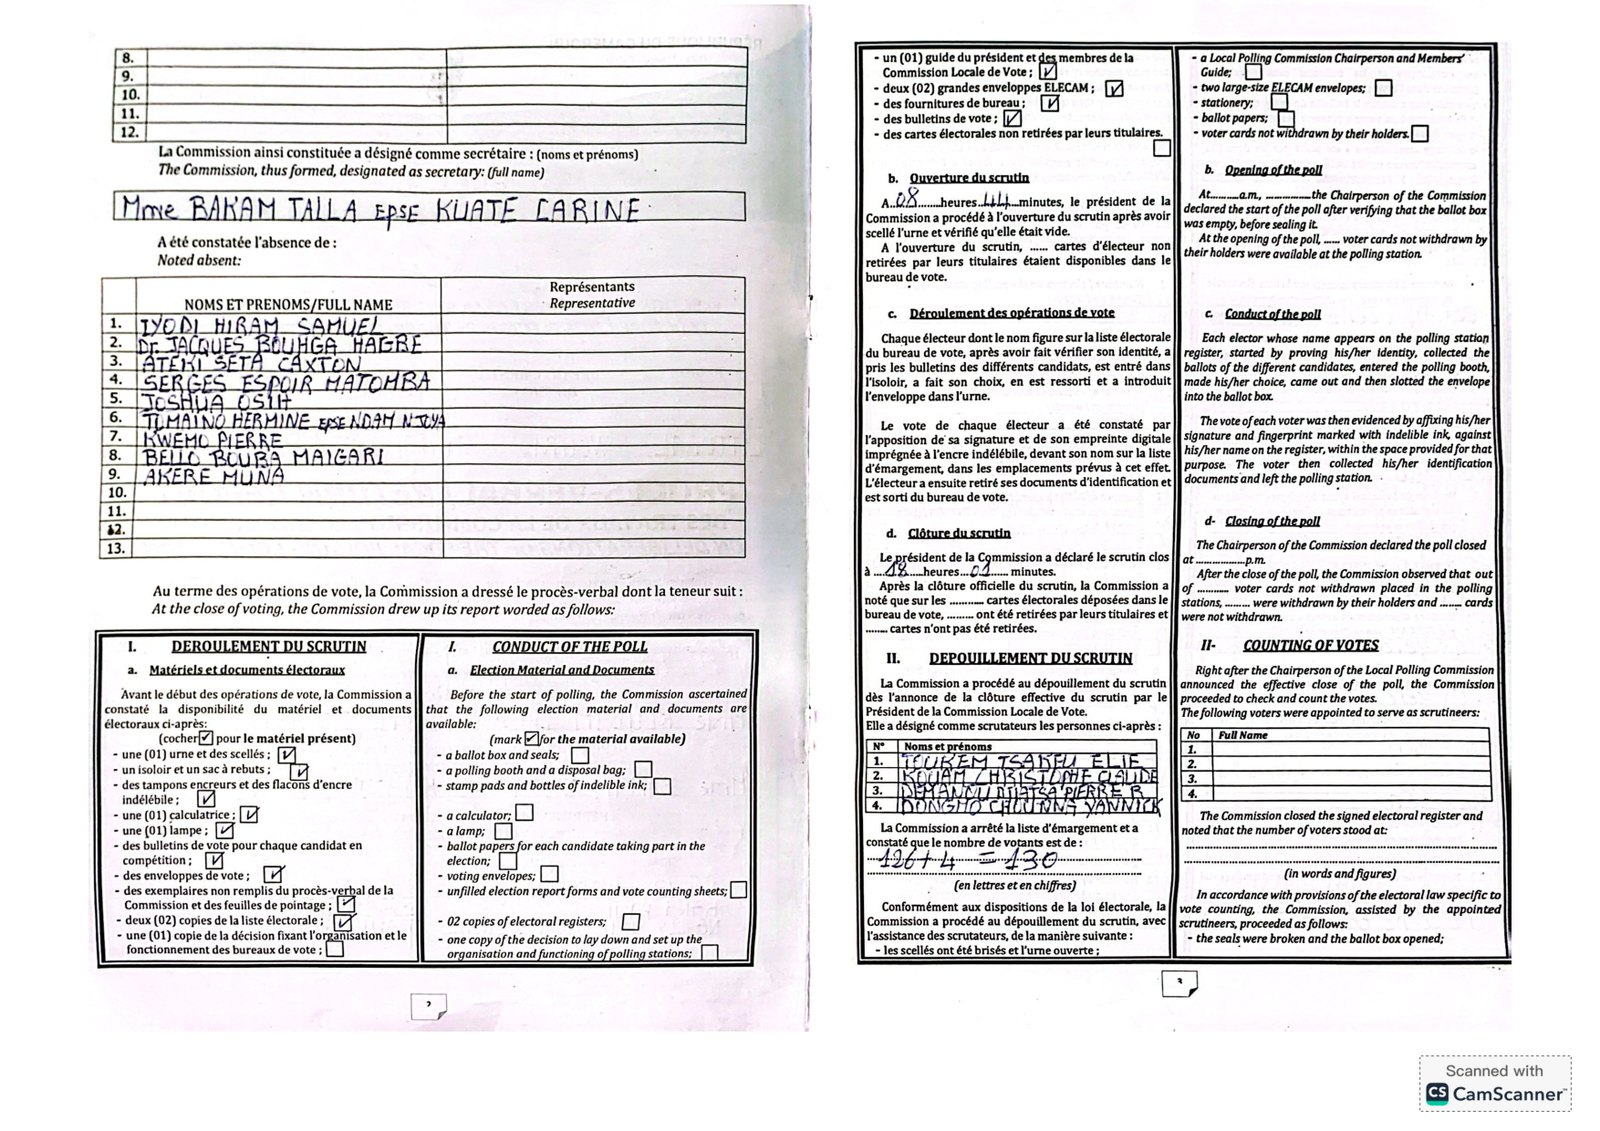 8.
9.
10.
11.
12.
La Commission ainsi constituée a désigné comme secrétaire : (noms et prénoms)
The Commission, thus formed, designated as secretary: (full name)
Mme BAKAM TALLA EPSE KUATE CARINE
A été constatée l'absence de :
Noted absent:
NOMS ET PRENOMS/FULL NAME
Représentants
Representative
1. IYODI HIRAM SAMUEL
2. Dr. JACQUES BOUHGA HAGBE
3. ATEKI SETA CAXTON
4. SERGES ESPOIR MATOMBA
5. JOSHUA OSIH
6. TOMAINO HERMINE EPSE NDAM NJOYA
7. KWEMO PIERRE
8. BELLO BOUBA MAIGARI
9. AKERE MUNA
10.
11.
12.
13.
Au terme des opérations de vote, la Commission a dressé le procès-verbal dont la teneur suit :
At the close of voting, the Commission drew up its report worded as follows:
I. DEROULEMENT DU SCRUTIN
a. Matériels et documents électoraux
Avant le début des opérations de vote, la Commission a
constaté la disponibilité du matériel et documents
électoraux ci-après:
(cocher ☑ pour le matériel présent)
- une (01) urne et des scellés ; ☑
- un isoloir et un sac à rebuts ; ☑
- des tampons encreurs et des flacons d'encre
indélébile ; ☑
- une (01) calculatrice ; ☑
- une (01) lampe ; ☑
- des bulletins de vote pour chaque candidat en
compétition ; ☑
- des enveloppes de vote ; ☑
- des exemplaires non remplis du procès-verbal de la
Commission et des feuilles de pointage ; ☑
- deux (02) copies de la liste électorale ; ☑
- une (01) copie de la décision fixant l'organisation et le
fonctionnement des bureaux de vote ; ☐
I. CONDUCT OF THE POLL
a. Election Material and Documents
Before the start of polling, the Commission ascertained
that the following election material and documents are
available:
(mark ☑ for the material available)
- a ballot box and seals; ☐
- a polling booth and a disposal bag; ☐
- stamp pads and bottles of indelible ink; ☐
- a calculator; ☐
- a lamp; ☐
- ballot papers for each candidate taking part in the
election; ☐
- voting envelopes; ☐
- unfilled election report forms and vote counting sheets; ☐
- 02 copies of electoral registers; ☐
- one copy of the decision to lay down and set up the
organisation and functioning of polling stations; ☐
2
- un (01) guide du président et des membres de la
Commission Locale de Vote ; ☑
- deux (02) grandes enveloppes ELECAM ; ☑
- des fournitures de bureau ; ☑
- des bulletins de vote ; ☑
- des cartes électorales non retirées par leurs titulaires.
☐
b. Ouverture du scrutin
A..08......heures..44...minutes, le président de la
Commission a procédé à l'ouverture du scrutin après avoir
scellé l'urne et vérifié qu'elle était vide.
A l'ouverture du scrutin, ...... cartes d'électeur non
retirées par leurs titulaires étaient disponibles dans le
bureau de vote.
c. Déroulement des opérations de vote
Chaque électeur dont le nom figure sur la liste électorale
du bureau de vote, après avoir fait vérifier son identité, a
pris les bulletins des différents candidats, est entré dans
l'isoloir, a fait son choix, en est ressorti et a introduit
l'enveloppe dans l'urne.
Le vote de chaque électeur a été constaté par
l'apposition de sa signature et de son empreinte digitale
imprégnée à l'encre indélébile, devant son nom sur la liste
d'émargement, dans les emplacements prévus à cet effet.
L'électeur a ensuite retiré ses documents d'identification et
est sorti du bureau de vote.
d. Clôture du scrutin
Le président de la Commission a déclaré le scrutin clos
à ....18....heures...01...... minutes.
Après la clôture officielle du scrutin, la Commission a
noté que sur les ........... cartes électorales déposées dans le
bureau de vote, ......... ont été retirées par leurs titulaires et
....... cartes n'ont pas été retirées.
II. DEPOUILLEMENT DU SCRUTIN
La Commission a procédé au dépouillement du scrutin
dès l'annonce de la clôture effective du scrutin par le
Président de la Commission Locale de Vote.
Elle a désigné comme scrutateurs les personnes ci-après :
N° Noms et prénoms
1. TOUKEM TSAKEU ELIE
2. KOUAM CHRISTOPHE CLAUDE
3. PIERRE R
4. DONGHO YANNICK
La Commission a arrêté la liste d'émargement et a
constaté que le nombre de votants est de :
126+4 = 130
(en lettres et en chiffres)
Conformément aux dispositions de la loi électorale, la
Commission a procédé au dépouillement du scrutin, avec
l'assistance des scrutateurs, de la manière suivante :
- les scellés ont été brisés et l'urne ouverte ;
- a Local Polling Commission Chairperson and Members'
Guide; ☐
- two large-size ELECAM envelopes; ☐
- stationery; ☐
- ballot papers; ☐
- voter cards not withdrawn by their holders. ☐
b. Opening of the poll
At.........a.m., ...............the Chairperson of the Commission
declared the start of the poll after verifying that the ballot box
was empty, before sealing it.
At the opening of the poll, ...... voter cards not withdrawn by
their holders were available at the polling station.
c. Conduct of the poll
Each elector whose name appears on the polling station
register, started by proving his/her identity, collected the
ballots of the different candidates, entered the polling booth,
made his/her choice, came out and then slotted the envelope
into the ballot box.
The vote of each voter was then evidenced by affixing his/her
signature and fingerprint marked with indelible ink, against
his/her name on the register, within the space provided for that
purpose. The voter then collected his/her identification
documents and left the polling station.
d- Closing of the poll
The Chairperson of the Commission declared the poll closed
at .................p.m.
After the close of the poll, the Commission observed that out
of ........... voter cards not withdrawn placed in the polling
stations, ......... were withdrawn by their holders and ........ cards
were not withdrawn.
II- COUNTING OF VOTES
Right after the Chairperson of the Local Polling Commission
announced the effective close of the poll, the Commission
proceeded to check and count the votes.
The following voters were appointed to serve as scrutineers:
No Full Name
1.
2.
3.
4.
The Commission closed the signed electoral register and
noted that the number of voters stood at:
(in words and figures)
In accordance with provisions of the electoral law specific to
vote counting, the Commission, assisted by the appointed
scrutineers, proceeded as follows:
- the seals were broken and the ballot box opened;
3
Scanned with
CS CamScanner